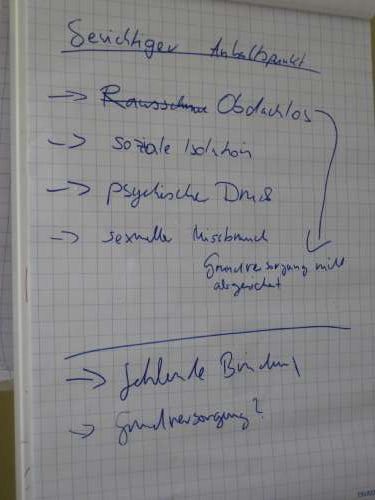 Gewichtiger Anhaltspunkt
→ Rausschmiss Obdachlos
→ soziale Isolation
→ psychische Druck
→ sexueller Missbrauch
Grundversorgung nicht
abgesichert
→ fehlende Bindung
→ Grundversorgung?